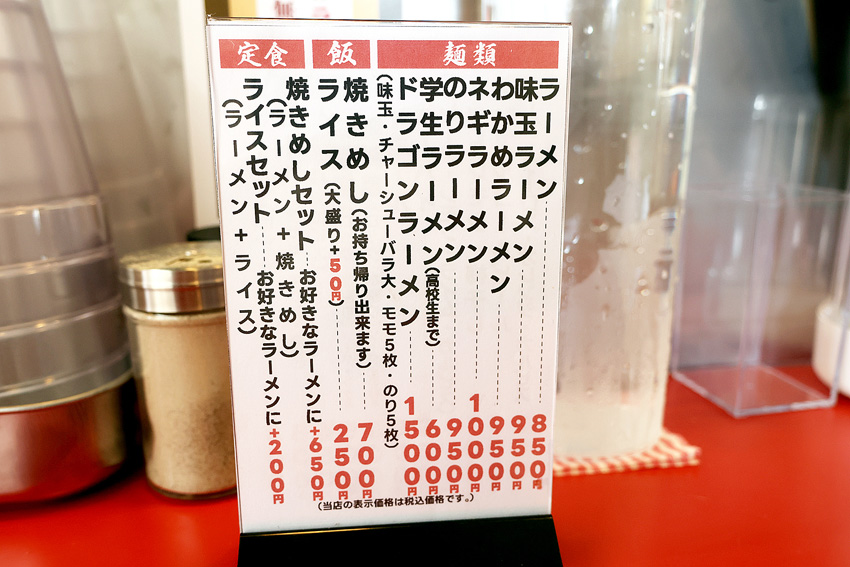 麺類
ラーメン 850円
味玉ラーメン 950円
わかめラーメン 950円
ネギラーメン 1050円
のりラーメン 950円
学生ラーメン(高校生まで) 600円
ドラゴンラーメン 1500円
(味玉・チャーシューバラ大・モモ5枚・のり5枚)
飯
焼きめし(お持ち帰り出来ます) 700円
ライス(大盛り+50円) 250円
定食
焼きめしセット お好きなラーメンに+650円
(ラーメン+焼きめし)
ライスセット お好きなラーメンに+200円
(ラーメン+ライス)
(当店の表示価格は税込価格です。)